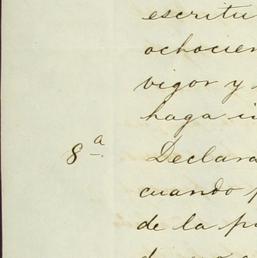 escritu
ochocien
vigor y
haga in
8ª Declara
cuando p
de la pa